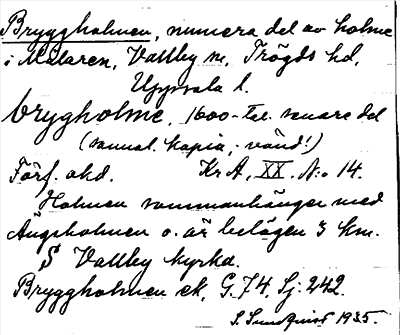 Bryggholmen, numera del av holme
i Mälaren, Vallby sn, Trögds hd,
Uppsala l.
brygholme, 1600-tal. senare del
(samml. kopia; vänd!)
Förf. okd. KrA, XX. N:o 14.
Holmen sammanhänger med
Ängsholmen o. är belägen 3 km.
S Vallby kyrka.
Bryggholmen ek, G. 74, Sj: 242.
S. Sundquist 1935